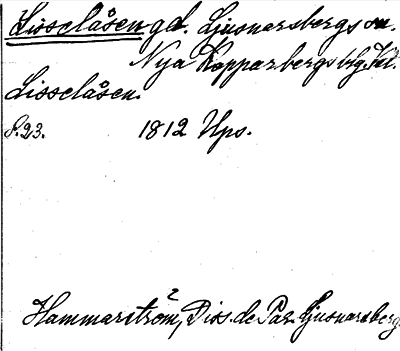 Lisselåsen gd. Ljusnarsbergs sn.
Nya Kopparbergs blg. Kbl.
Lisselåsen.
S. 23. 1812 Ups.
Hammarström, Diss. de Par. Ljusnarsberg